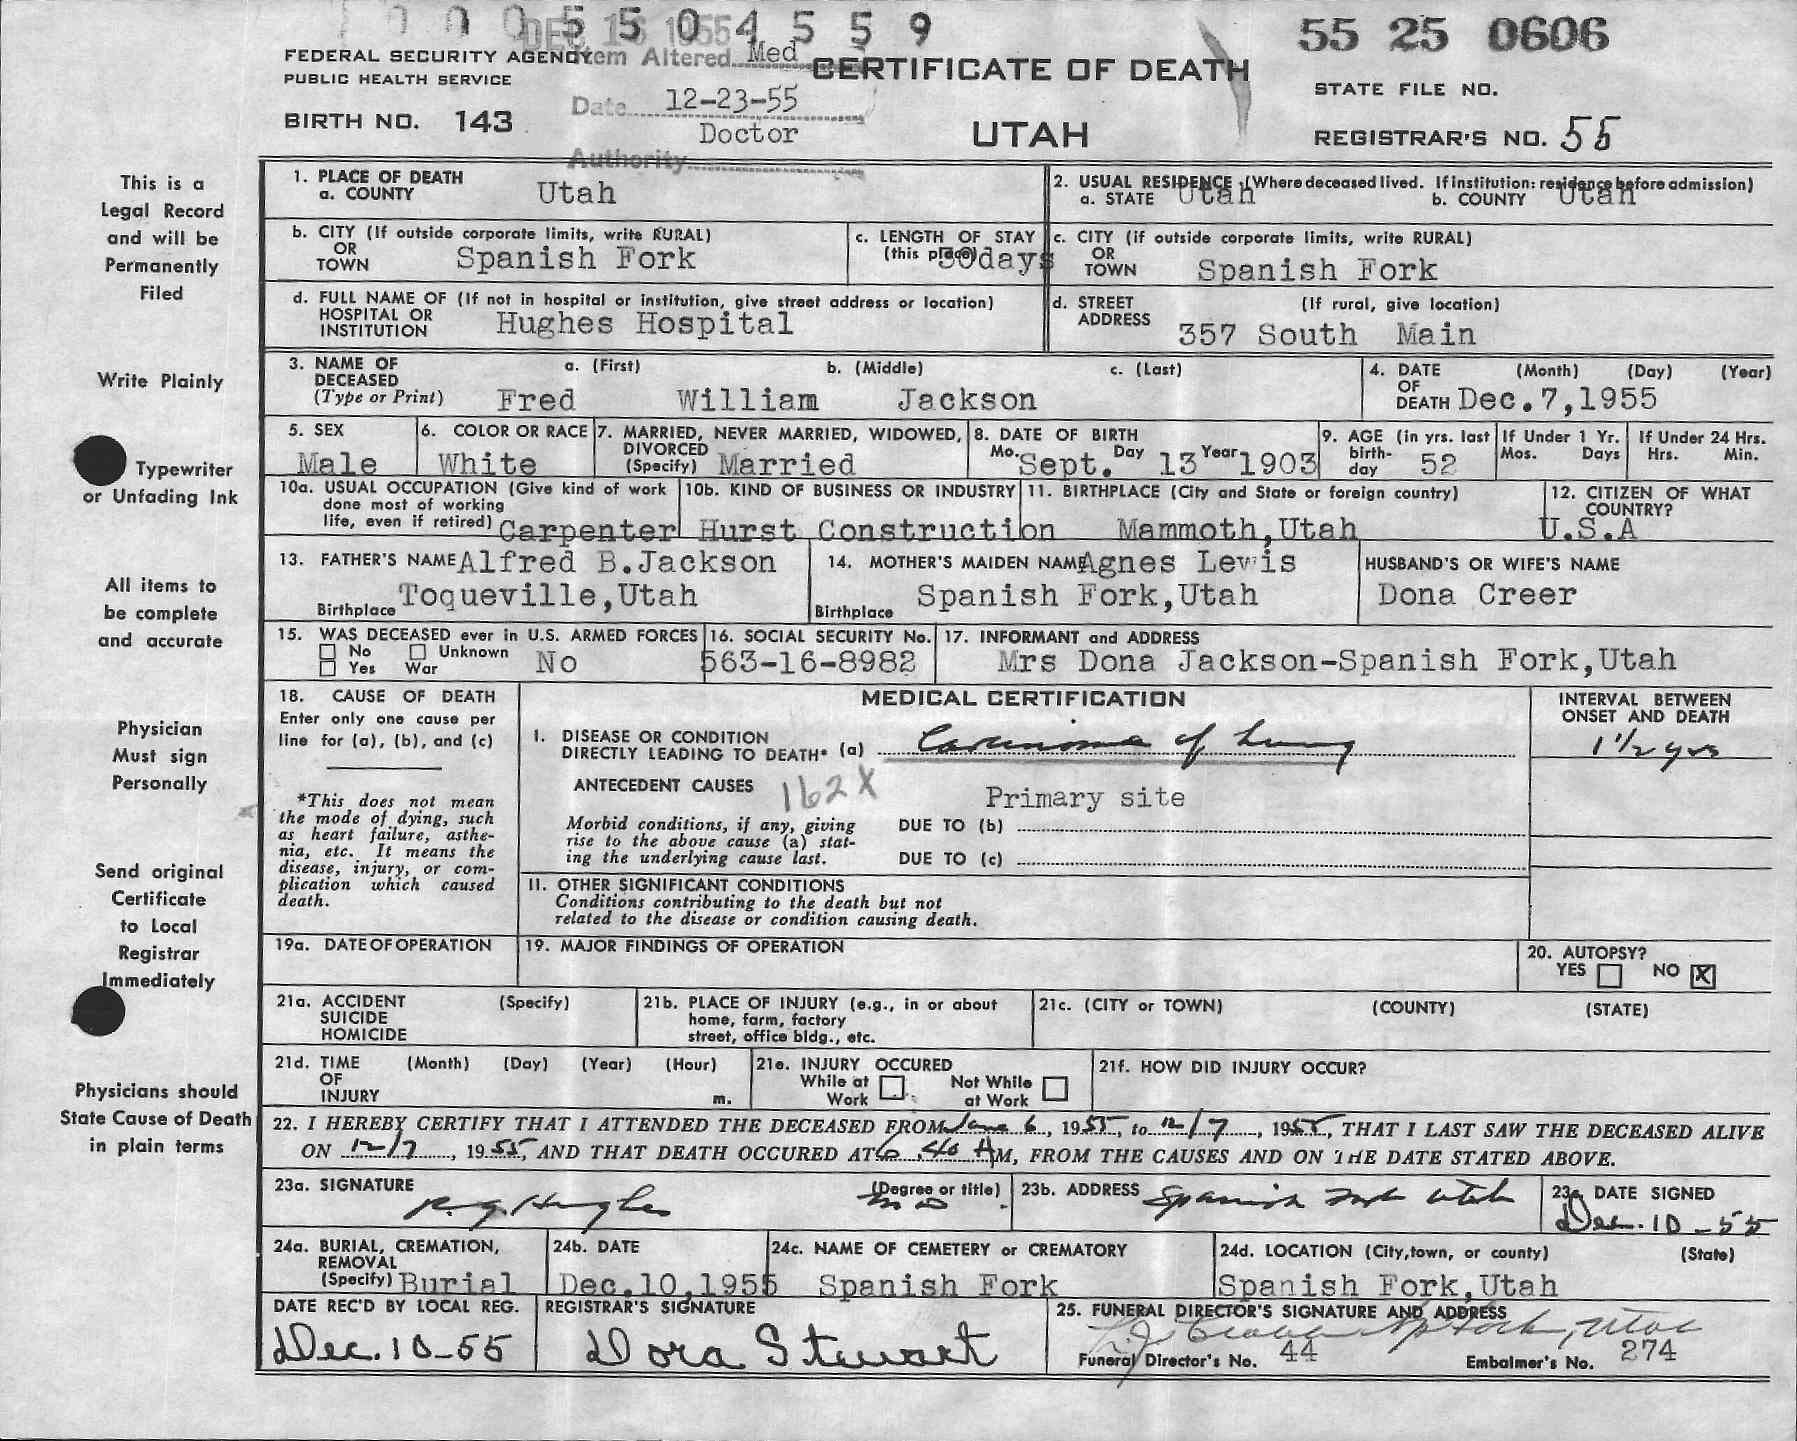 0 0 0 5 5 0 4 5 5 9
DEC 16 1955
55 25 0606
FEDERAL SECURITY AGENCY
Item Altered Med
CERTIFICATE OF DEATH
PUBLIC HEALTH SERVICE
STATE FILE NO.
Date 12-23-55
BIRTH NO. 143
Doctor
UTAH
REGISTRAR'S NO. 55
Authority
This is a
Legal Record
and will be
Permanently
Filed
Write Plainly
Typewriter
or Unfading Ink
All items to
be complete
and accurate
Physician
Must sign
Personally
Send original
Certificate
to Local
Registrar
Immediately
Physicians should
State Cause of Death
in plain terms
1. PLACE OF DEATH
a. COUNTY Utah
2. USUAL RESIDENCE (Where deceased lived. If institution: residence before admission)
a. STATE Utah b. COUNTY Utah
b. CITY (If outside corporate limits, write RURAL)
OR
TOWN Spanish Fork
c. LENGTH OF STAY
(this place) 30days
c. CITY (if outside corporate limits, write RURAL)
OR
TOWN Spanish Fork
d. FULL NAME OF (If not in hospital or institution, give street address or location)
HOSPITAL OR
INSTITUTION Hughes Hospital
d. STREET (If rural, give location)
ADDRESS 357 South Main
3. NAME OF a. (First) b. (Middle) c. (Last)
DECEASED
(Type or Print) Fred William Jackson
4. DATE (Month) (Day) (Year)
OF
DEATH Dec.7,1955
5. SEX
Male
6. COLOR OR RACE
White
7. MARRIED, NEVER MARRIED, WIDOWED,
DIVORCED
(Specify) Married
8. DATE OF BIRTH
Mo. Sept. Day 13 Year 1903
9. AGE (in yrs. last
birth-
day 52
If Under 1 Yr.
Mos. Days
If Under 24 Hrs.
Hrs. Min.
10a. USUAL OCCUPATION (Give kind of work
done most of working
life, even if retired) Carpenter
10b. KIND OF BUSINESS OR INDUSTRY
Hurst Construction
11. BIRTHPLACE (City and State or foreign country)
Mammoth,Utah
12. CITIZEN OF WHAT
COUNTRY?
U.S.A
13. FATHER'S NAME Alfred B.Jackson
Birthplace Toqueville,Utah
14. MOTHER'S MAIDEN NAME Agnes Lewis
Birthplace Spanish Fork,Utah
HUSBAND'S OR WIFE'S NAME
Dona Creer
15. WAS DECEASED ever in U.S. ARMED FORCES
No Unknown
Yes War No
16. SOCIAL SECURITY No.
563-16-8982
17. INFORMANT and ADDRESS
Mrs Dona Jackson-Spanish Fork,Utah
18. CAUSE OF DEATH
Enter only one cause per
line for (a), (b), and (c)
*This does not mean
the mode of dying, such
as heart failure, asthe-
nia, etc. It means the
disease, injury, or com-
plication which caused
death.
MEDICAL CERTIFICATION
INTERVAL BETWEEN
ONSET AND DEATH
I. DISEASE OR CONDITION
DIRECTLY LEADING TO DEATH* (a) Carcinoma of Lung
1 1/2 yrs
ANTECEDENT CAUSES 162X
Primary site
Morbid conditions, if any, giving
rise to the above cause (a) stat-
ing the underlying cause last.
DUE TO (b)
DUE TO (c)
II. OTHER SIGNIFICANT CONDITIONS
Conditions contributing to the death but not
related to the disease or condition causing death.
19a. DATE OF OPERATION
19. MAJOR FINDINGS OF OPERATION
20. AUTOPSY?
YES NO X
21a. ACCIDENT (Specify)
SUICIDE
HOMICIDE
21b. PLACE OF INJURY (e.g., in or about
home, farm, factory
street, office bldg., etc.
21c. (CITY or TOWN) (COUNTY) (STATE)
21d. TIME (Month) (Day) (Year) (Hour)
OF
INJURY m.
21e. INJURY OCCURED
While at Not While
Work at Work
21f. HOW DID INJURY OCCUR?
22. I HEREBY CERTIFY THAT I ATTENDED THE DECEASED FROM June 6, 1955, to 12/7, 1955, THAT I LAST SAW THE DECEASED ALIVE
ON 12/7, 1955, AND THAT DEATH OCCURED AT 6 40 AM, FROM THE CAUSES AND ON THE DATE STATED ABOVE.
23a. SIGNATURE (Degree or title)
R.G. Hughes MD
23b. ADDRESS Spanish Fork Utah
23c. DATE SIGNED
Dec. 10-55
24a. BURIAL, CREMATION,
REMOVAL
(Specify) Burial
24b. DATE
Dec.10,1955
24c. NAME OF CEMETERY or CREMATORY
Spanish Fork
24d. LOCATION (City,town, or county) (State)
Spanish Fork,Utah
DATE REC'D BY LOCAL REG.
Dec. 10-55
REGISTRAR'S SIGNATURE
Dora Stewart
25. FUNERAL DIRECTOR'S SIGNATURE AND ADDRESS
Utah
Funeral Director's No. 44 Embalmer's No. 274